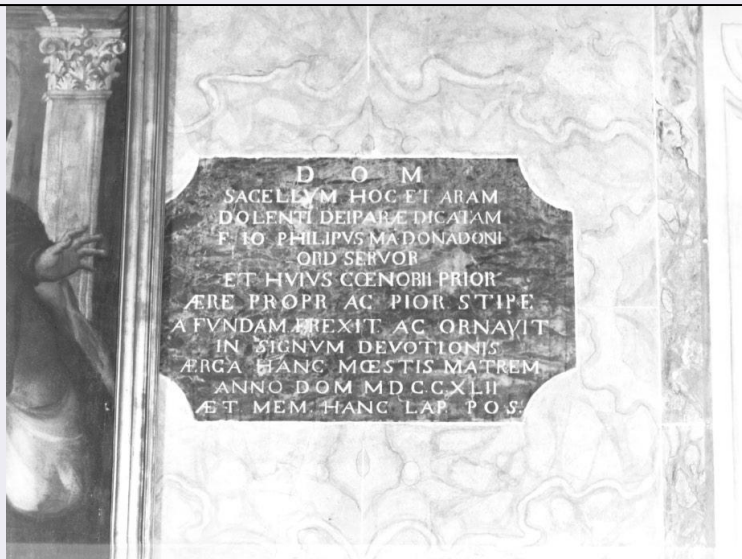 D O M
SACELLVM HOC ET ARAM
DOLENTI DEIPARÆ DICATAM
F. IO PHILIPVS MA DONADONI
ORD SERVOR
ET HVIVS CŒNOBII PRIOR
ÆRE PROPR AC PIOR STIPE
A FVNDAM EREXIT AC ORNAVIT
IN SIGNVM DEVOTIONIS
ÆRGA HANC MŒSTIS MATREM
ANNO DOM MD.C.CXLII
ÆT MEM. HANC LAP. POS.